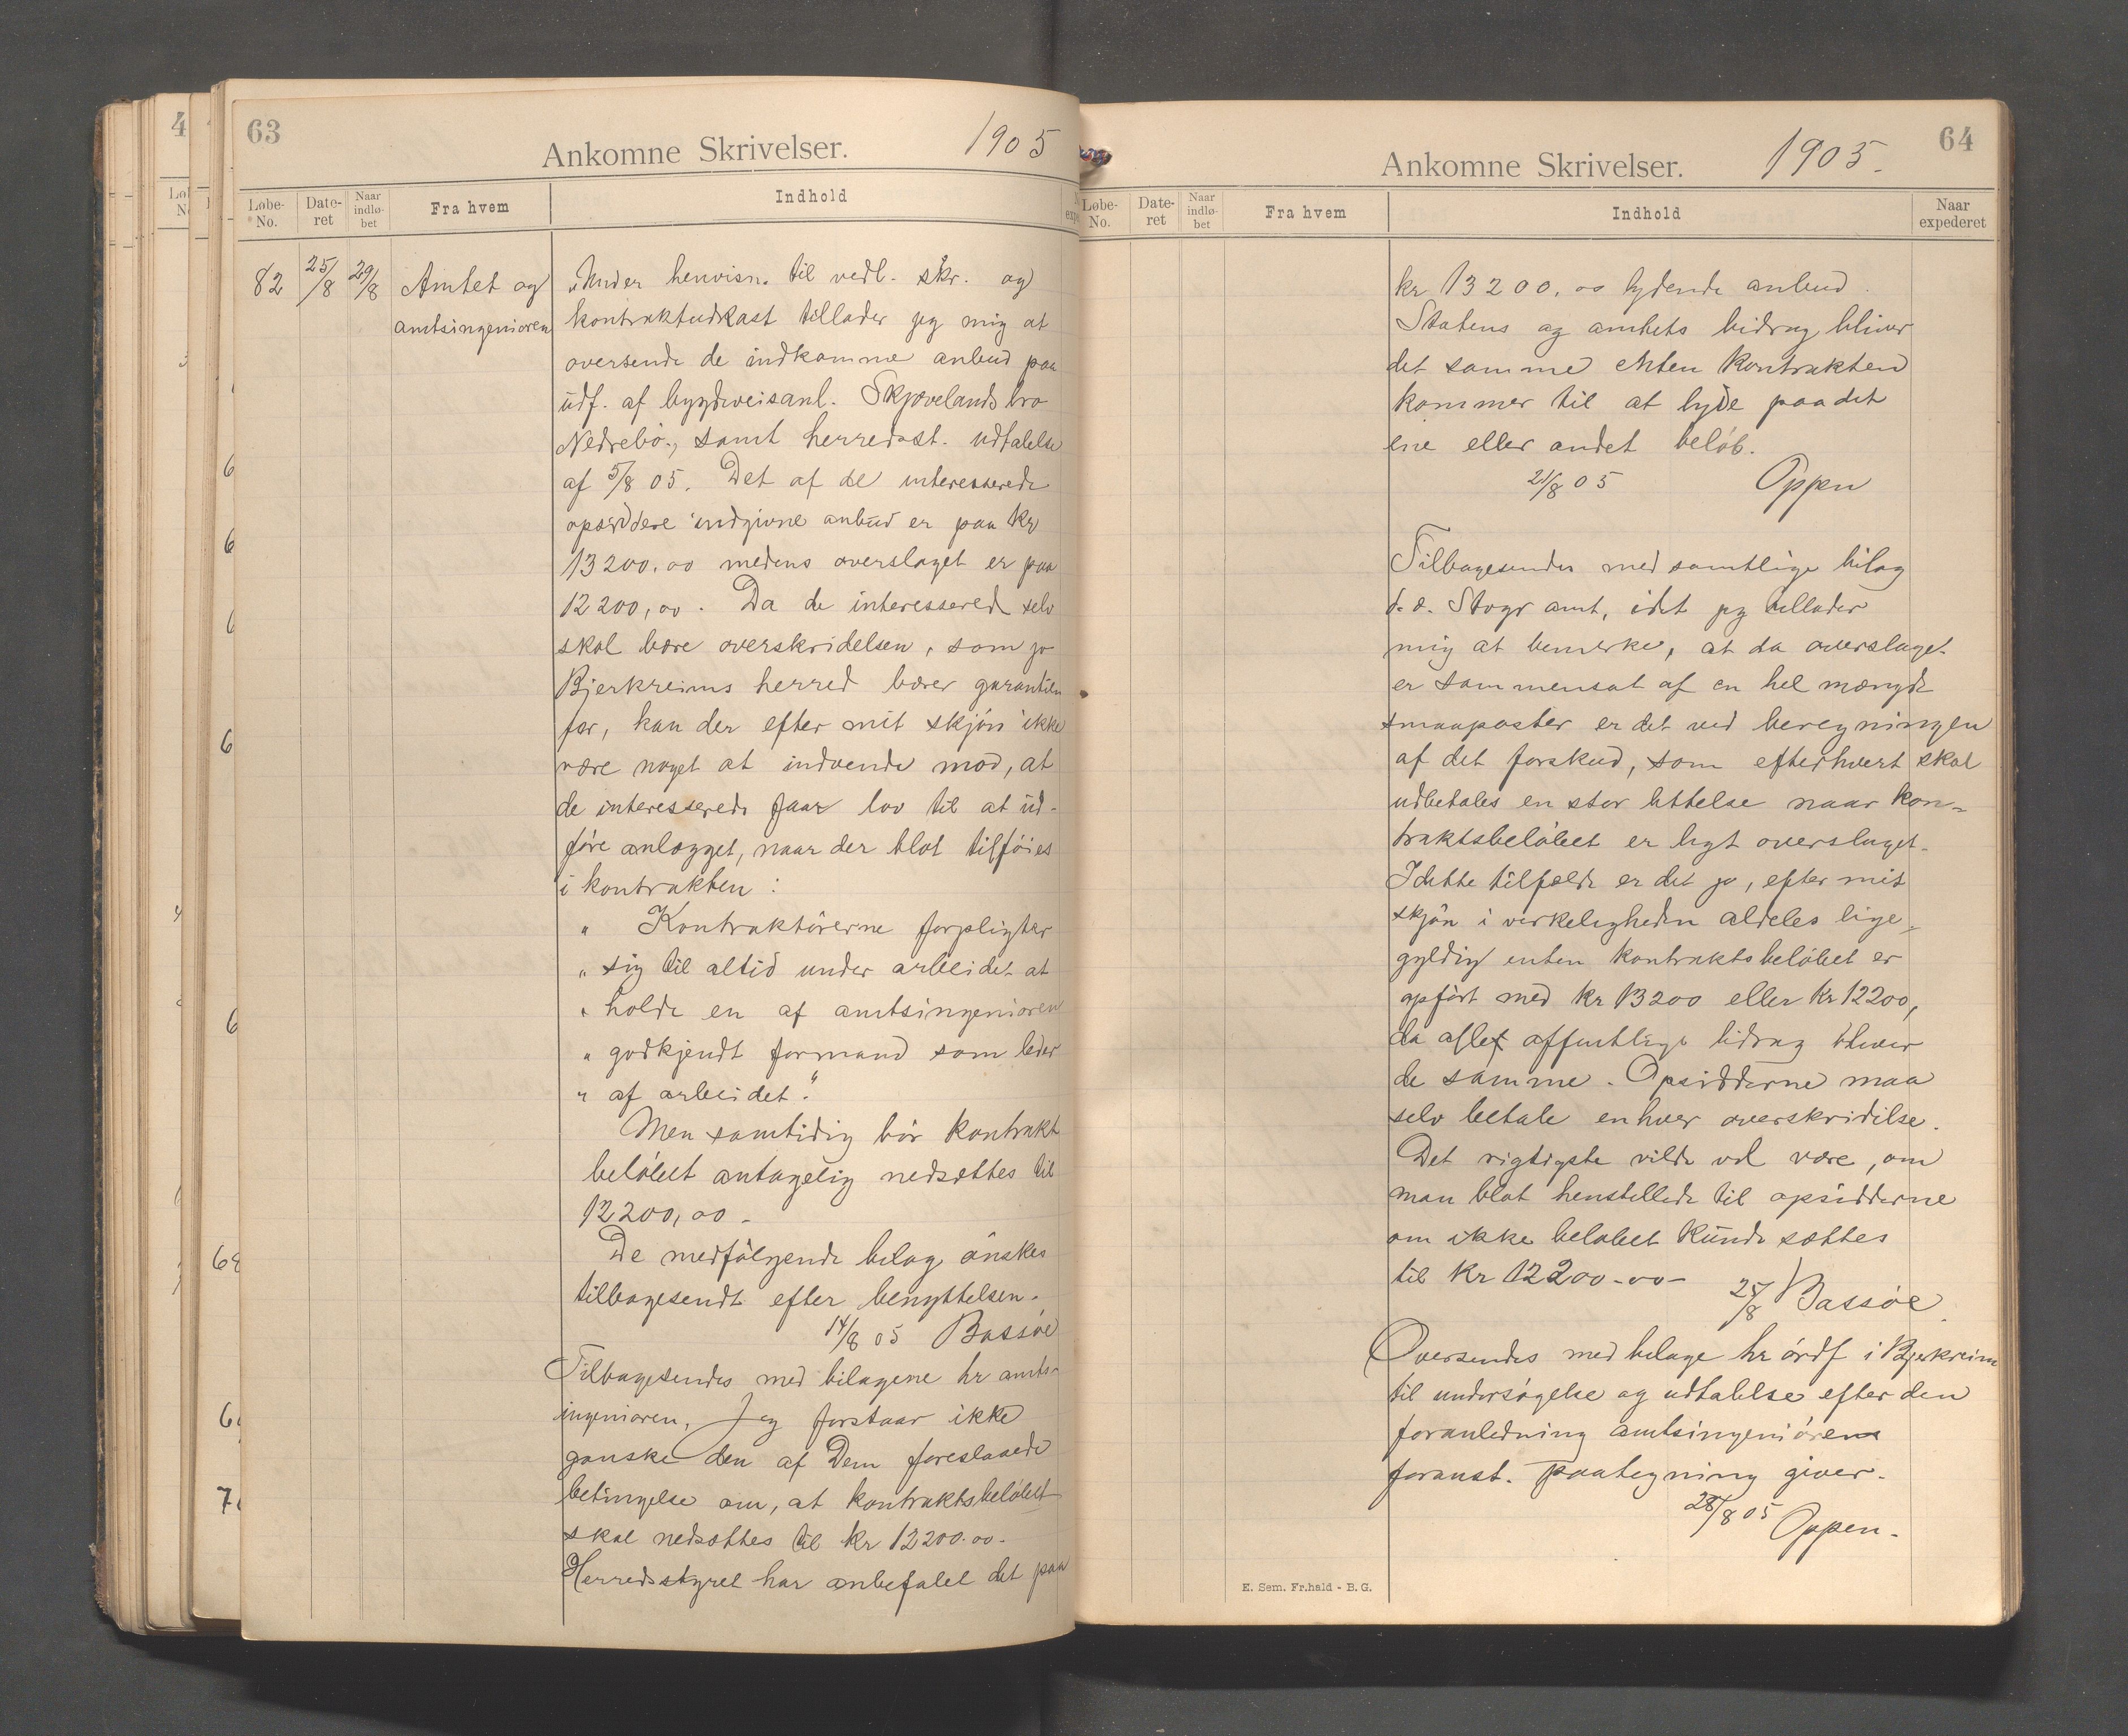 63
Ankomne Skrivelser.
1905
Løbe-No.
Date-ret
Naar indlø-bet
Fra hvem
Indhold
82
25/8
29/8
Amtet og
amtsingeniøren
"Under henvisn. til vedl. skr. og
kontraktudkast tillader jeg mig at
oversende de indkomne anbud paa
udf. af bygdeveisanl. Skjævelands bro
Nedrebø, samt herredsst. udtalelse
af 5/8 05. Det af de interesserede
opsiddere indgivne anbud er paa kr
13200.00 medens overslaget er paa
12200,00. Da de interesserede selv
skal bære overskridelsen, som jo
Bjerkreims herred bærer garantien
for, kan der efter mit skjøn ikke
være noget at indvende mod, at
de interesserede faar lov til at ud-
føre anlægget, naar der blot tilføies
i kontrakten:
" Kontraktørerne forpligter
" sig til altid under arbeidet at
" holde en af amtsingeniøren
" godkjendt formand som leder
" af arbeidet."
Men samtidig bør kontrakt
beløbet antagelig nedsættes til
12200,00 -
De medfølgende bilag ønskes
tilbagesendt efter benyttelsen.
14/8 05 Bassøe
Tilbagesendes med bilagene hr amts-
ingeniøren. Jeg forstaar ikke
ganske den af Dem foreslaaede
betingelse om, at kontraktsbeløbet
skal nedsættes til kr 12200.00.
Herredsstyret har anbefalet det paa
64
Ankomne Skrivelser.
1905.
Løbe-No.
Date-ret
Naar indlø-bet
Fra hvem
Indhold
Naar expederet
kr 13200.00 lydende anbud.
Statens og amtets bidrag bliver
det samme enten kontrakten
kommer til at lyde paa det
ene eller andet beløb.
21/8 05 Oppen
Tilbagesendes med samtlige bilag
Amt, idet jeg tillader
mig at bemerke, at da overslaget
er sammensat af en hel mængde
smaaposter er det ved beregningen
af det forskud, som efterhvert skal
udbetales en stor lettelse naar kon-
traktsbeløbet er ligt overslaget.
I dette tilfælde er det jo, efter mit
skjøn i virkeligheden aldeles lige-
gyldig enten kontraktsbeløbet er
opført med kr 13200 eller kr 12200,
da offentlige bidrag bliver
de samme. Opsidderne maa
selv betale enhver overskridelse.
Det rigtigste vilde vel være, om
man blot henstillede til opsidderne
om ikke beløbet kunde sættes
til kr 12200-00-
25/8 Bassøe
Oversendes med bilage hr ordf i Bjerkreim
til undersøgelse og udtalelse efter den
foranledning amtsingeniørens
foranst. paategning giver.
28/8 05 Oppen.
E. Sem. Fr.hald - B. G.